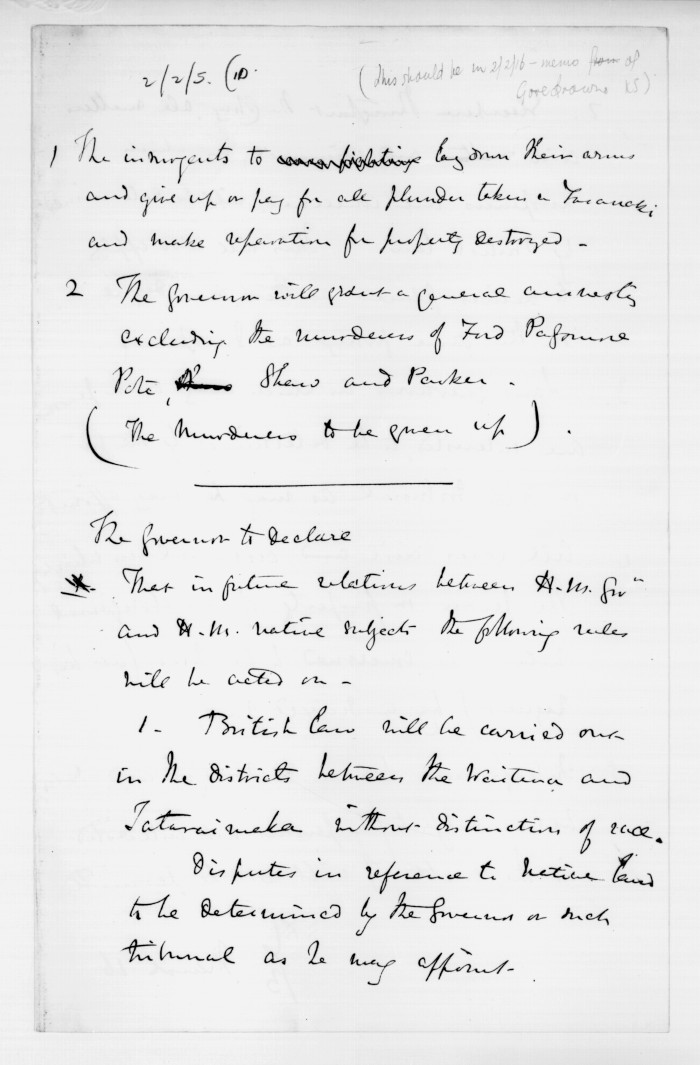 2/2/5. (1D.
(This should be in 2/2/16 - memo from of
Gore Browne IS)
1 The insurgents to cease fighting lay down their arms
and give up or pay for all plunder taken in Taranaki
and make reparation for property destroyed -
2 The Governor will grant a general amnesty
excluding the murderers of Ford Passmore
Pote, Shaw and Parker.
(The murderers to be given up).
The Governor to declare
That in future relations between H.M. Govt
and H.M. native subjects the following rules
will be acted on -
1 - British law will be carried out
in the districts between the Waitara and
Tataraimaka without distinction of race.
Disputes in reference to Native Land
to be determined by the Governor or such
tribunal as he may appoint -